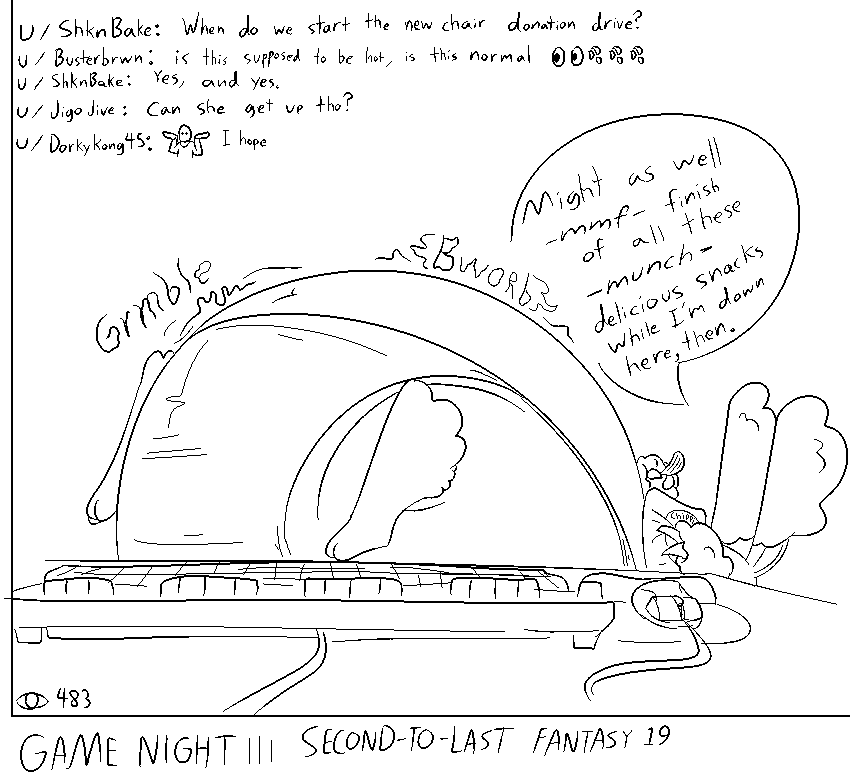 u/ShknBake: When do we start the new chair donation drive?
u/Busterbrwn: is this supposed to be hot, is this normal
u/ShknBake: Yes, and yes.
u/JigoJive: Can she get up tho?
u/DorkyKong45: I hope
Might as well
-mmf- finish
of all these
-munch-
delicious snacks
while I'm down
here, then.
Grmble
Bworb
Chipps
483
GAME NIGHT III SECOND-TO-LAST FANTASY 19